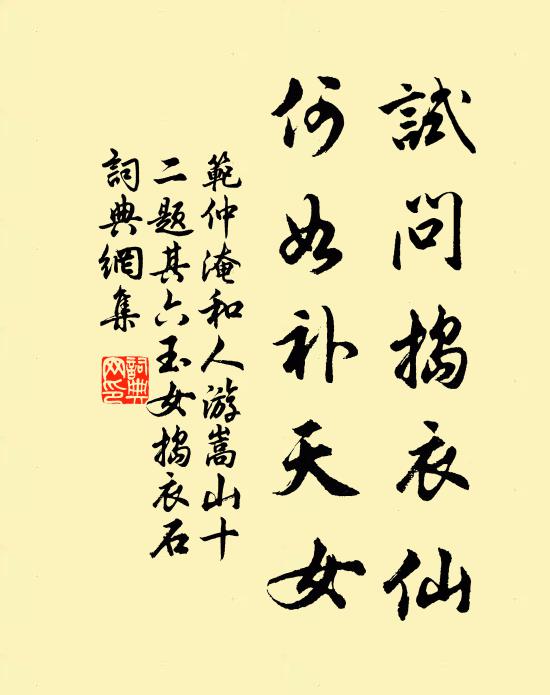 試問搗衣仙
何如补天女
範仲淹和人游嵩山十
二题其六玉女搗衣石
詞典網集
詞典
网印